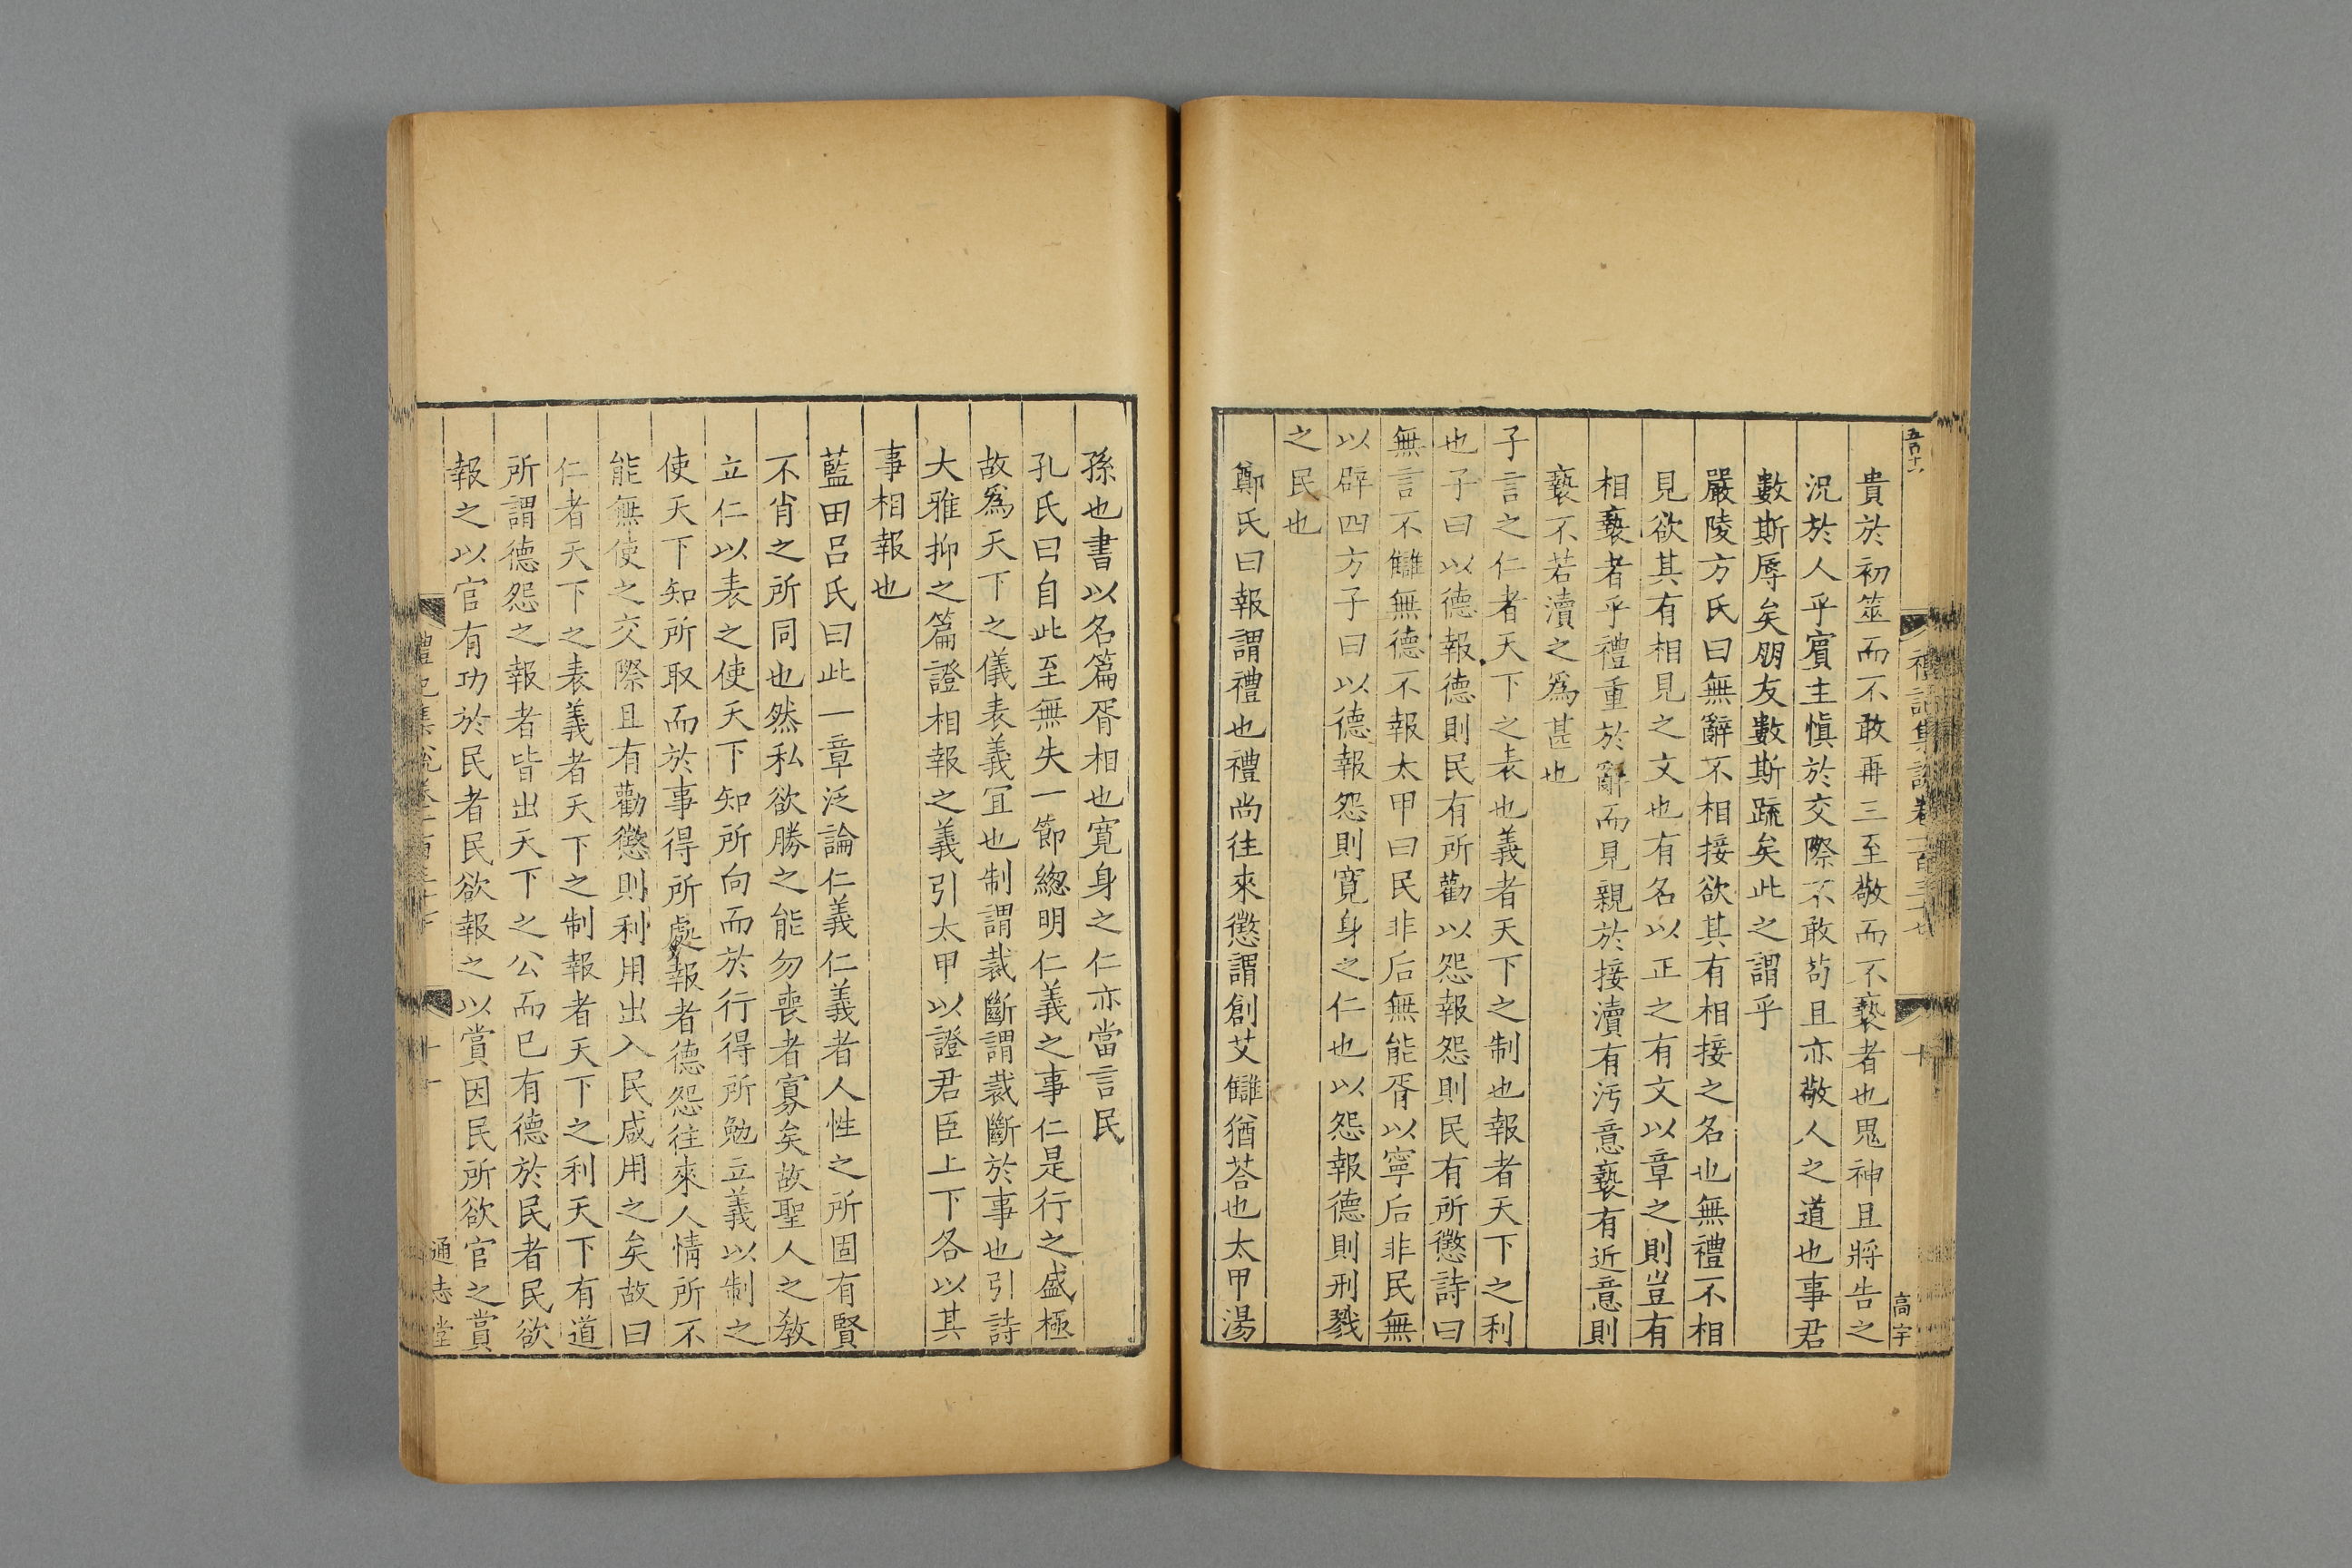 貴於初筮而不敢再三至敬而不褻者也鬼神且將告之
況於人乎賓主慎於交際不敢苟且亦敬人之道也事君
數斯辱矣朋友數斯疏矣此之謂乎
嚴陵方氏曰無辭不相接欲其有相接之名也無禮不相
見欲其有相見之文也有名以正之有文以章之則豈有
相褻者乎禮重於辭而見親於接瀆有汚意褻有近意則
褻不若瀆之爲甚也
子言之仁者天下之表也義者天下之制也報者天下之利
也子曰以德報德則民有所勸以怨報怨則民有所懲詩曰
無言不讎無德不報太甲曰民非后無能胥以寧后非民無
以辟四方子曰以德報怨則寬身之仁也以怨報德則刑戮
之民也
鄭氏曰報謂禮也禮尚往來懲謂創艾讎猶荅也太甲湯
高宇
孫也書以名篇胥相也寬身之仁亦當言民
孔氏曰自此至無失一節緫明仁義之事仁是行之盛極
故爲天下之儀表義冝也制謂裁斷謂裁斷於事也引詩
大雅抑之篇證相報之義引太甲以證君臣上下各以其
事相報也
藍田呂氏曰此一章泛論仁義仁義者人性之所固有賢
不肖之所同也然私欲勝之能勿喪者寡矣故聖人之敎
立仁以表之使天下知所向而於行得所勉立義以制之
使天下知所取而於事得所處報者德怨往來人情所不
能無使之交際且有勸懲則利用出入民咸用之矣故曰
仁者天下之表義者天下之制報者天下之利天下有道
所謂德怨之報者皆出天下之公而已有德於民者民欲
報之以官有功於民者民欲報之以賞因民所欲官之賞
十一
通志堂